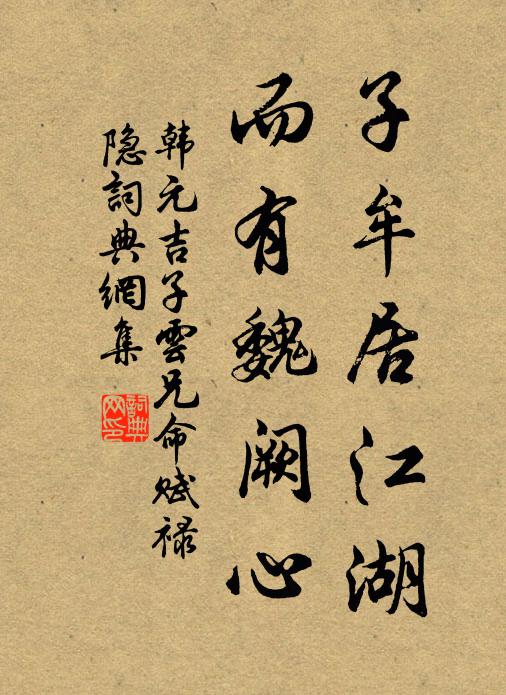 子牟居江湖
而有魏阙心
韩元吉子雲兄命赋禄
隐詞典網集
詞典
网印